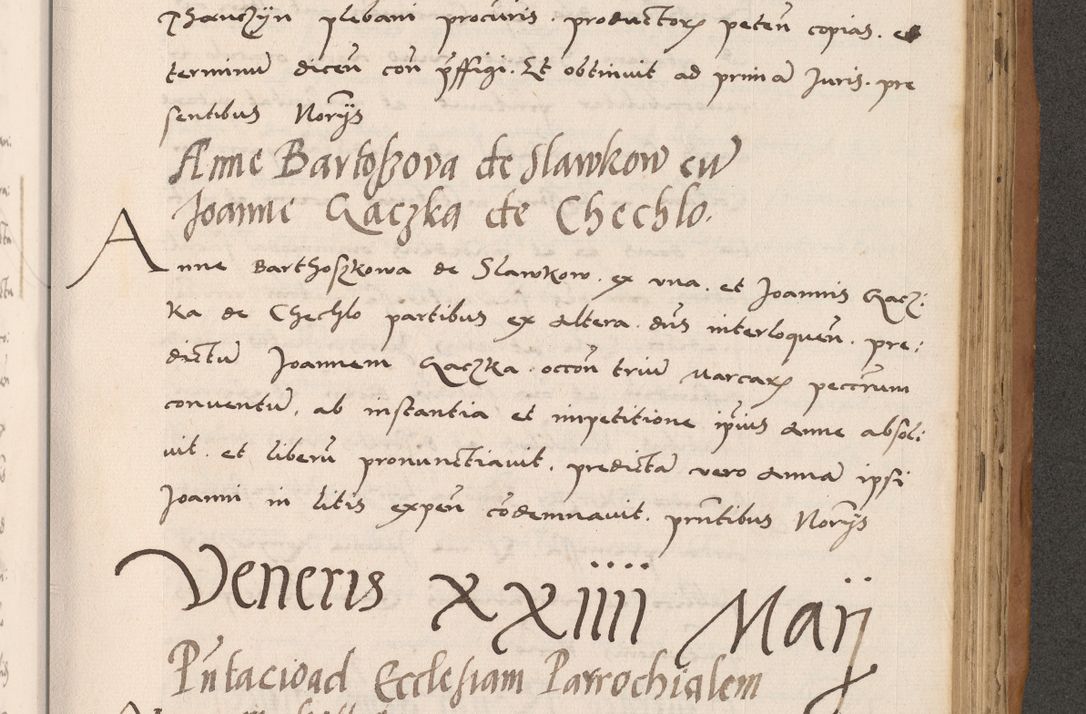 plebani procuris. productorꝝ peteñ copias. et
terminũ diceñ con p̃ffigi. Et obtinuit ad primã Juris. pre
sentibus Norijs
Anne Bartoßova de Slawkow cũ
Joanne Gaczka de Chechlo.
Anne Barthoszkowa de Slawkow. ex vna. et Joannis Gacz:
ka de Chechlo partibus ex altera. dñs interloqueñ. pre:
dictũ Joannem Gaczka. occoñ triũ marcarꝝ peccrum
conventũ, ab instantia et impetitione ip̃ius Anne absol:
uit. et liberũ pronunctiauit. predictã vero Annã ipsi
Joanni in litis expeñ cõdemnauit. prñtibus Norijs
Veneris XXIIII Maij
Pñtacio ad Ecclesiam Parrochialem